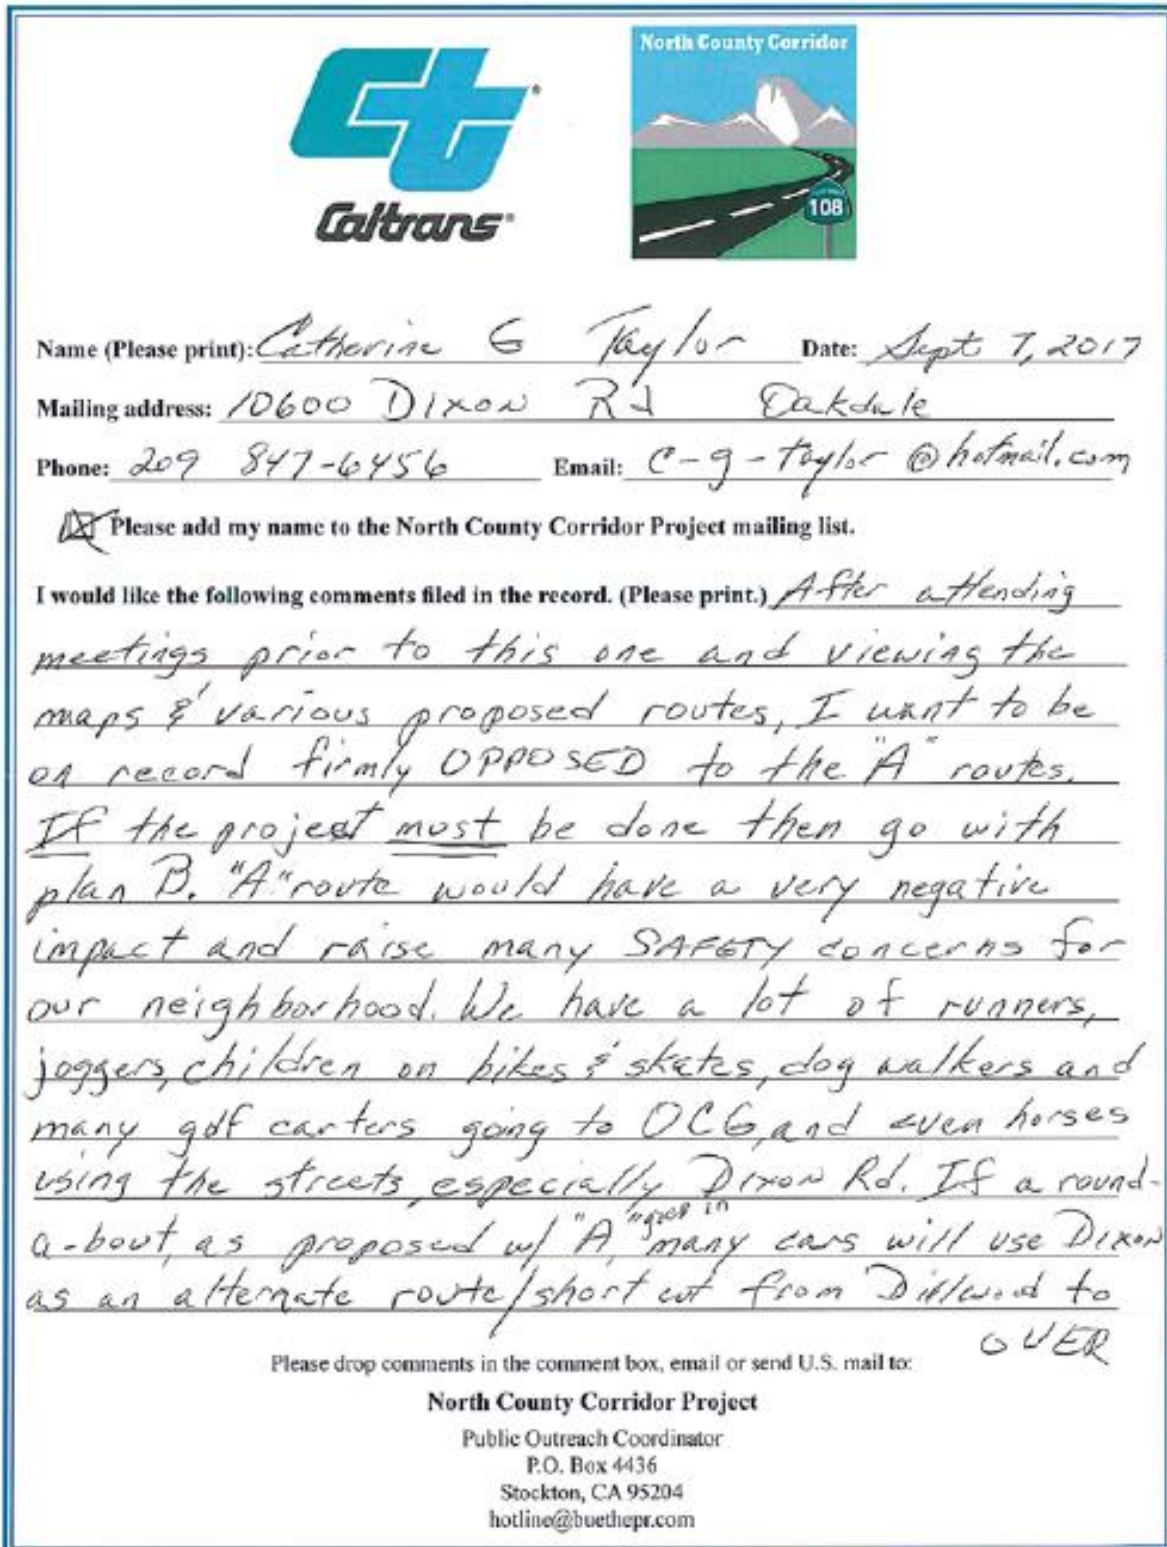 North County Corridor
Ct
Caltrans
108
Name (Please print): Catherine G Taylor Date: Sept 7, 2017
Mailing address: 10600 Dixon Rd Oakdale
Phone: 209 847-6456 Email: c-g-taylor@hotmail.com
Please add my name to the North County Corridor Project mailing list.
I would like the following comments filed in the record. (Please print.) After attending
meetings prior to this one and viewing the
maps & various proposed routes, I want to be
on record firmly OPPOSED to the "A" routes.
If the project must be done then go with
plan B. "A" route would have a very negative
impact and raise many SAFETY concerns for
our neighborhood. We have a lot of runners,
joggers, children on bikes & skates, dog walkers and
many golf carters going to OCG, and even horses
using the streets, especially Dixon Rd. If a round-
a-bout, as proposed w/ "A," goes in many cars will use Dixon
as an alternate route/short cut from Dillwood to
OVER
Please drop comments in the comment box, email or send U.S. mail to:
North County Corridor Project
Public Outreach Coordinator
P.O. Box 4436
Stockton, CA 95204
hotline@buethepr.com